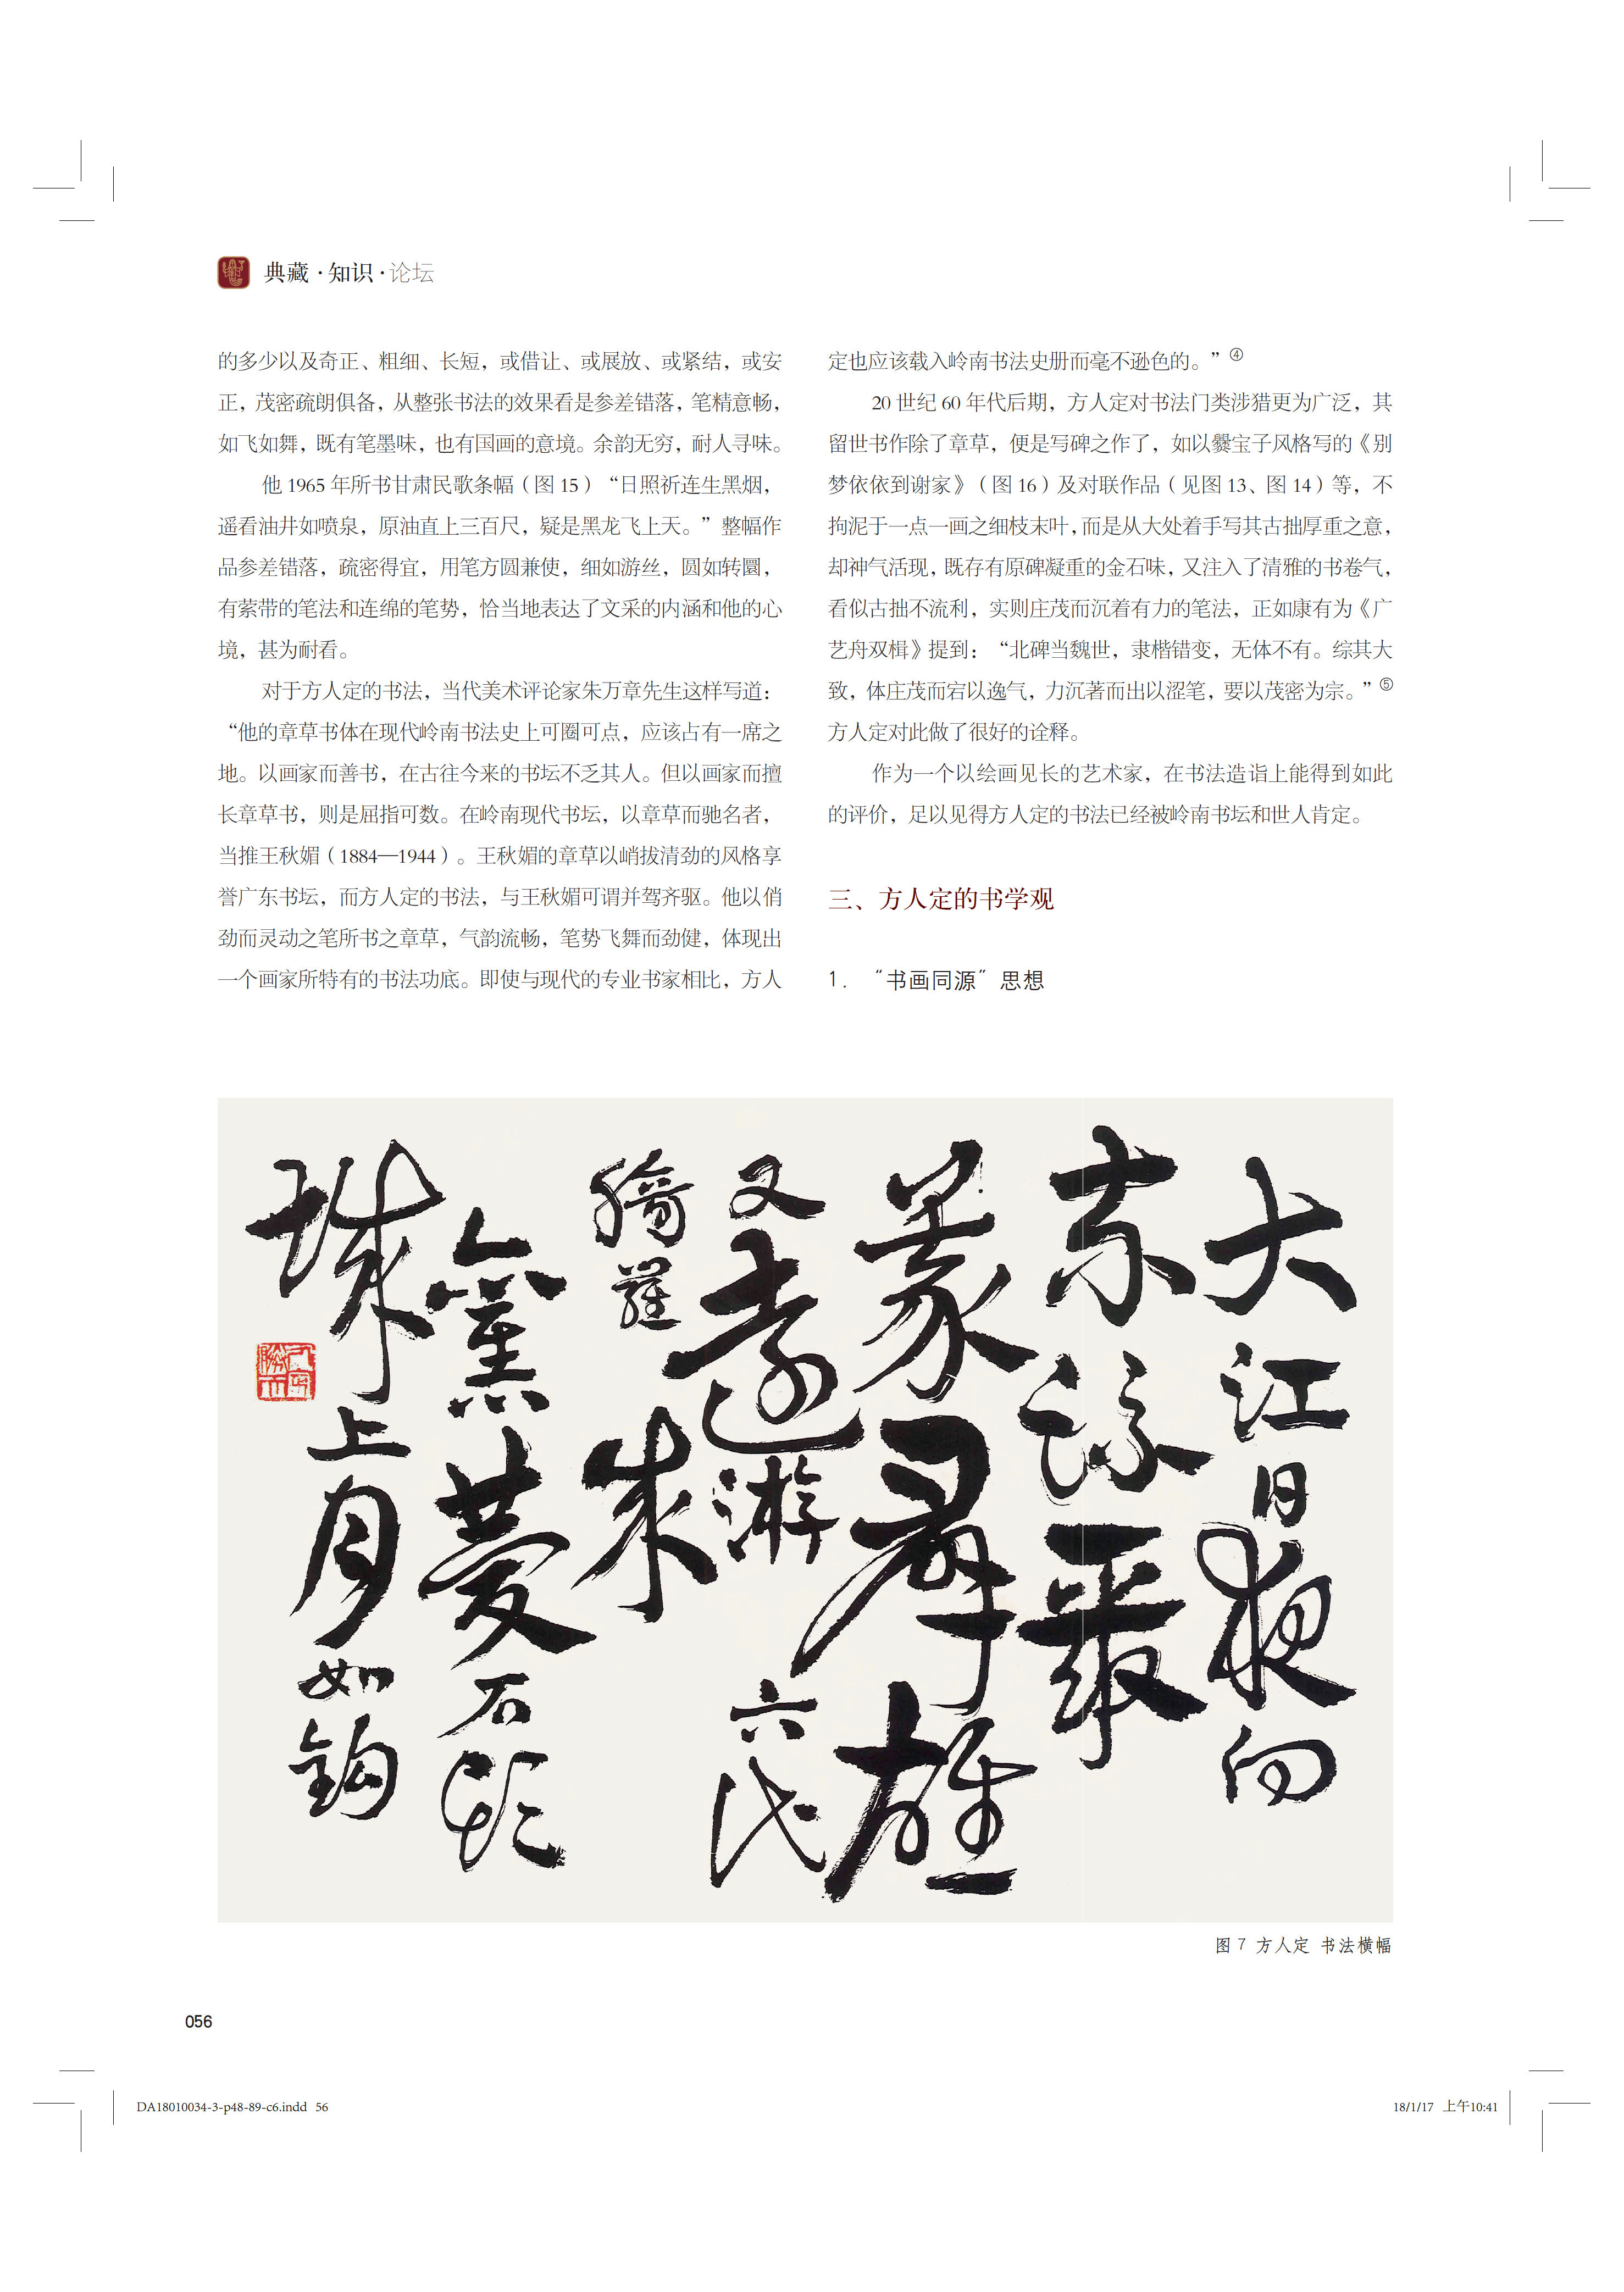 典藏·知识·论坛
的多少以及奇正、粗细、长短，或借让、或展放、或紧结，或安
正，茂密疏朗俱备，从整张书法的效果看是参差错落，笔精意畅，
如飞如舞，既有笔墨味，也有国画的意境。余韵无穷，耐人寻味。
他 1965 年所书甘肃民歌条幅（图 15）“日照祈连生黑烟，
遥看油井如喷泉，原油直上三百尺，疑是黑龙飞上天。”整幅作
品参差错落，疏密得宜，用笔方圆兼使，细如游丝，圆如转圜，
有萦带的笔法和连绵的笔势，恰当地表达了文采的内涵和他的心
境，甚为耐看。
对于方人定的书法，当代美术评论家朱万章先生这样写道：
“他的章草书体在现代岭南书法史上可圈可点，应该占有一席之
地。以画家而善书，在古往今来的书坛不乏其人。但以画家而擅
长章草书，则是屈指可数。在岭南现代书坛，以章草而驰名者，
当推王秋媚（1884—1944）。王秋媚的章草以峭拔清劲的风格享
誉广东书坛，而方人定的书法，与王秋媚可谓并驾齐驱。他以俏
劲而灵动之笔所书之章草，气韵流畅，笔势飞舞而劲健，体现出
一个画家所特有的书法功底。即使与现代的专业书家相比，方人
定也应该载入岭南书法史册而毫不逊色的。”④
20 世纪 60 年代后期，方人定对书法门类涉猎更为广泛，其
留世书作除了章草，便是写碑之作了，如以爨宝子风格写的《别
梦依依到谢家》（图 16）及对联作品（见图 13、图 14）等，不
拘泥于一点一画之细枝末叶，而是从大处着手写其古拙厚重之意，
却神气活现，既存有原碑凝重的金石味，又注入了清雅的书卷气，
看似古拙不流利，实则庄茂而沉着有力的笔法，正如康有为《广
艺舟双楫》提到：“北碑当魏世，隶楷错变，无体不有。综其大
致，体庄茂而宕以逸气，力沉著而出以涩笔，要以茂密为宗。”⑤
方人定对此做了很好的诠释。
作为一个以绘画见长的艺术家，在书法造诣上能得到如此
的评价，足以见得方人定的书法已经被岭南书坛和世人肯定。
三、方人定的书学观
1. “书画同源”思想
大江日夜向
东流聚
义群雄
又远游六代
绮罗成
旧梦石头
城上月如钩
人定勝天
图 7 方人定 书法横幅
056
DA18010034-3-p48-89-c6.indd 56
18/1/17 上午10:41